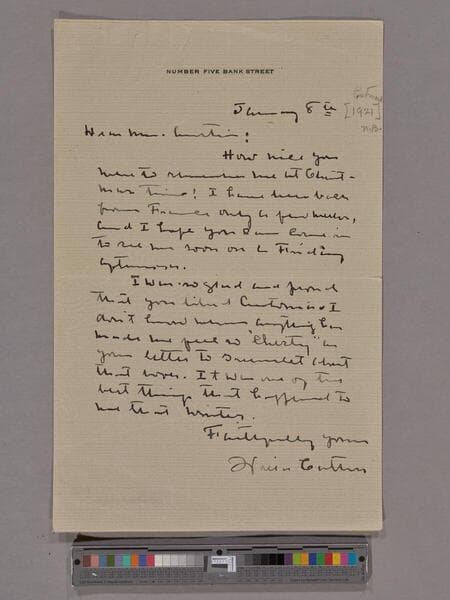 NUMBER FIVE BANK STREET
January 8th
[1921]
Dear Mrs. Austin:
How nice you
were to remember me at Christ-
mas time! I have been back
from France only a few weeks,
and I hope you can come in
to see me soon on a Friday
afternoon.
I was so glad and proud
that you liked Antonia. I
don't know when anything has
made me feel so "chesty" as
your letter to about
that novel. It was one of the
best things that happened to
me that winter.
Faithfully yours
Willa Cather